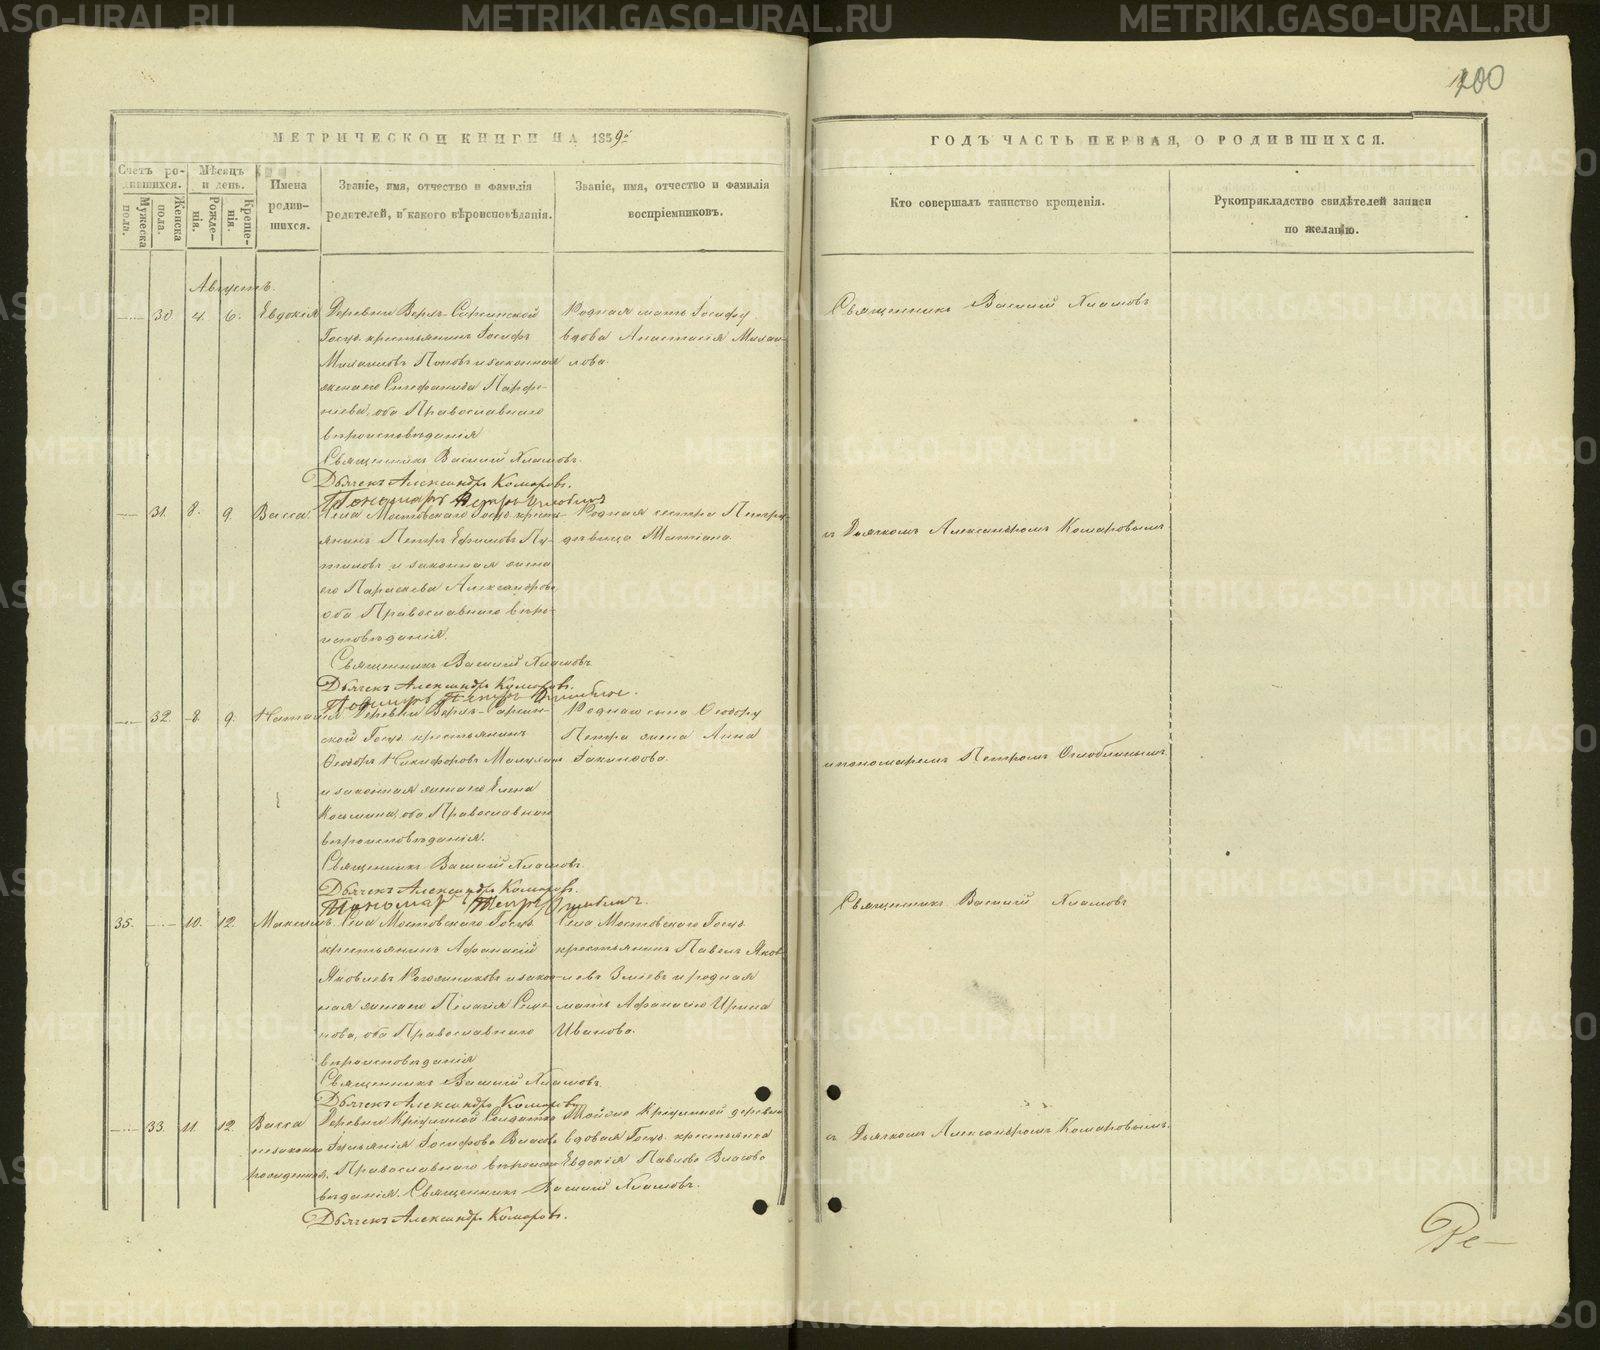 METRIKI.GASO-URAL.RU
200
МЕТРИЧЕСКОЙ КНИГИ НА 1859й
Счетъ родившихся.
Мужеска пола.
Женска пола.
Мѣсяцъ и день.
Рожденія.
Крещенія.
Имена родившихся.
Званіе, имя, отчество и фамилія
родителей, и какого вѣроисповѣданія.
Званіе, имя, отчество и фамилія
воспріемниковъ.
ГОДЪ ЧАСТЬ ПЕРВАЯ, О РОДИВШИХСЯ.
Кто совершалъ таинство крещенія.
Рукоприкладство свидѣтелей записи
по желанію.
Августъ.
30. 4. 6. Евдокія
Деревни Верхъ-Саринской
Госуд. крестьянинъ Іосифъ
Михаиловъ Поповъ и законная
жена его Стефанида Парфе-
ніева, оба Православнаго
вѣроисповѣданія
Священникъ Василій Хламовъ.
Дьячекъ Александръ Комаровъ.
Пономарь Петръ
Родная мать Іосифу
вдова Анастасія Михаи-
лова.
Священникъ Василій Хламовъ
31. 8. 9. Васса
Села Мостовскаго Госуд. кресть-
янинъ Петръ Ефимовъ Пу-
тиловъ и законная жена
его Параскева Александрова
оба Православнаго вѣро-
исповѣданія.
Священникъ Василій Хламовъ
Дьячекъ Александръ Комаровъ.
Пономарь Петръ
Родная сестра Петру
дѣвица Матіана.
съ Дьячкомъ Александромъ Комаровымъ
32. 8. 9. Наталія
Деревни Верхъ-Сарин-
ской Госуд. крестьянинъ
Ѳеодоръ Никифоровъ
и законная жена его Елена
Косьмина, оба Православнаго
вѣроисповѣданія.
Священникъ Василій Хламовъ.
Дьячекъ Александръ Комаровъ.
Пономарь Петръ
Роднаго сына Ѳеодору
Петра жена Анна
Іакинфова.
и пономаремъ Петромъ Оглоблинымъ
35. 10. 12. Максимъ
Села Мостовскаго Госуд.
крестьянинъ Афанасій
Яковлевъ и закон-
ная жена его Пелагія Семе-
нова, оба Православнаго
вѣроисповѣданія
Священникъ Василій Хламовъ.
Дьячекъ Александръ Комаровъ
Села Мостовскаго Госуд.
крестьянинъ Павелъ Яков-
левъ Зміевъ и родная
мать Афанасію Ирина
Иванова.
Священникъ Василій Хламовъ
33. 11. 12. Васса
незаконно
рожденная.
Деревни
Іосифова Власова
Православнаго вѣроиспо-
вѣданія. Священникъ Василій Хламовъ.
Дьячекъ Александръ Комаровъ.
Тойже деревни
вдовая Госуд. крестьянка
Евдокія Павлова Власова
съ Дьячкомъ Александромъ Комаровымъ.
Ре-